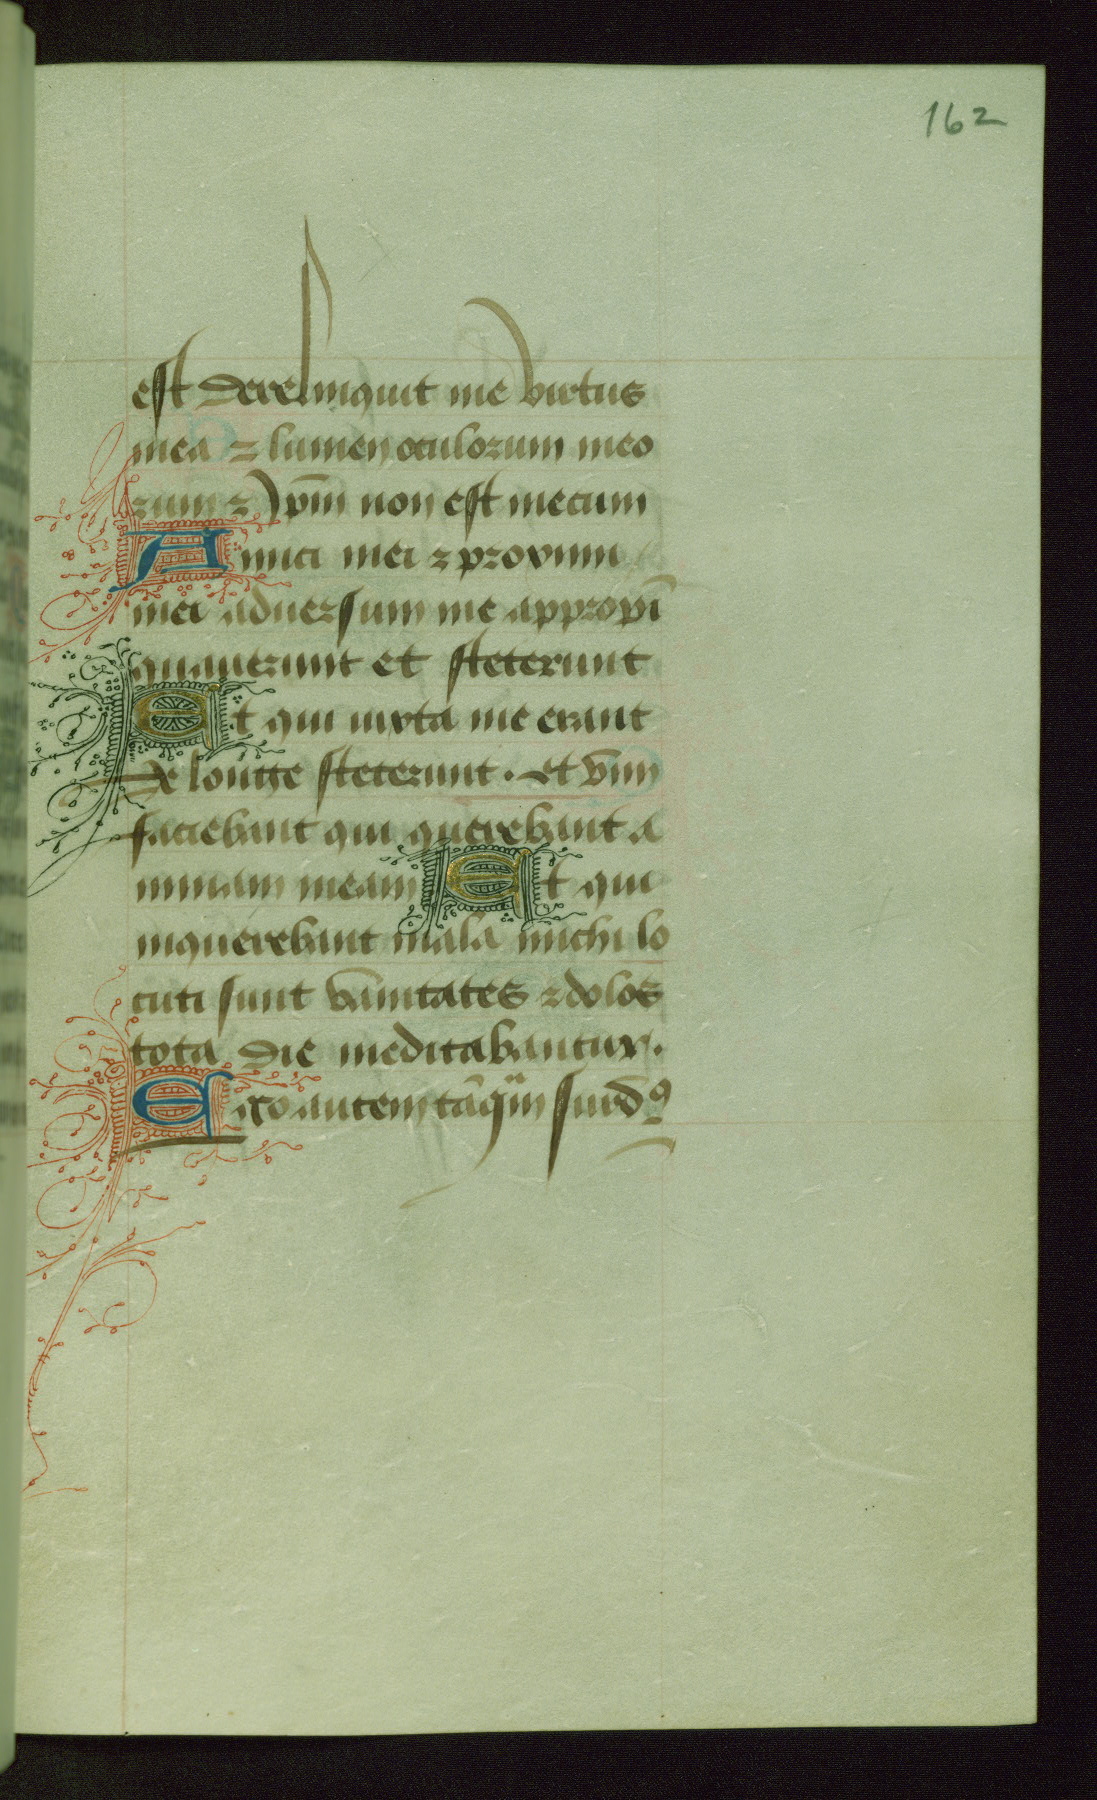 162
est dereliquit me virtus
mea ⁊ lumen oculorum meo
rum ⁊ ip̄m non est mecum
Amici mei ⁊ proximi
mei aduersum me appropī
quauerunt et steterunt
Et qui iuxta me erant
de longe steterunt. Et vim
faciebant qui querebant a
nimam meam Et qui
inquerebant mala michi lo
cuti sunt vānitates ⁊ dolos
tota die meditabantur.
Ego autem tāqͣm surdꝰ